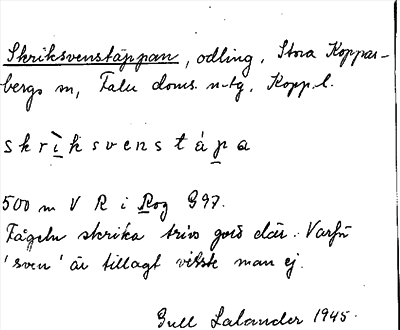 Skriksvenstäppan, odling, Stora Koppar-
bergs sn, Falu doms. n-tg, Kopp.l.
skrìksvenstápa
500 m V R i Rog G97.
Fågeln skrika trivs god där. Varför
'sven' är tillagt visste man ej.
Gull Lalander 1945.